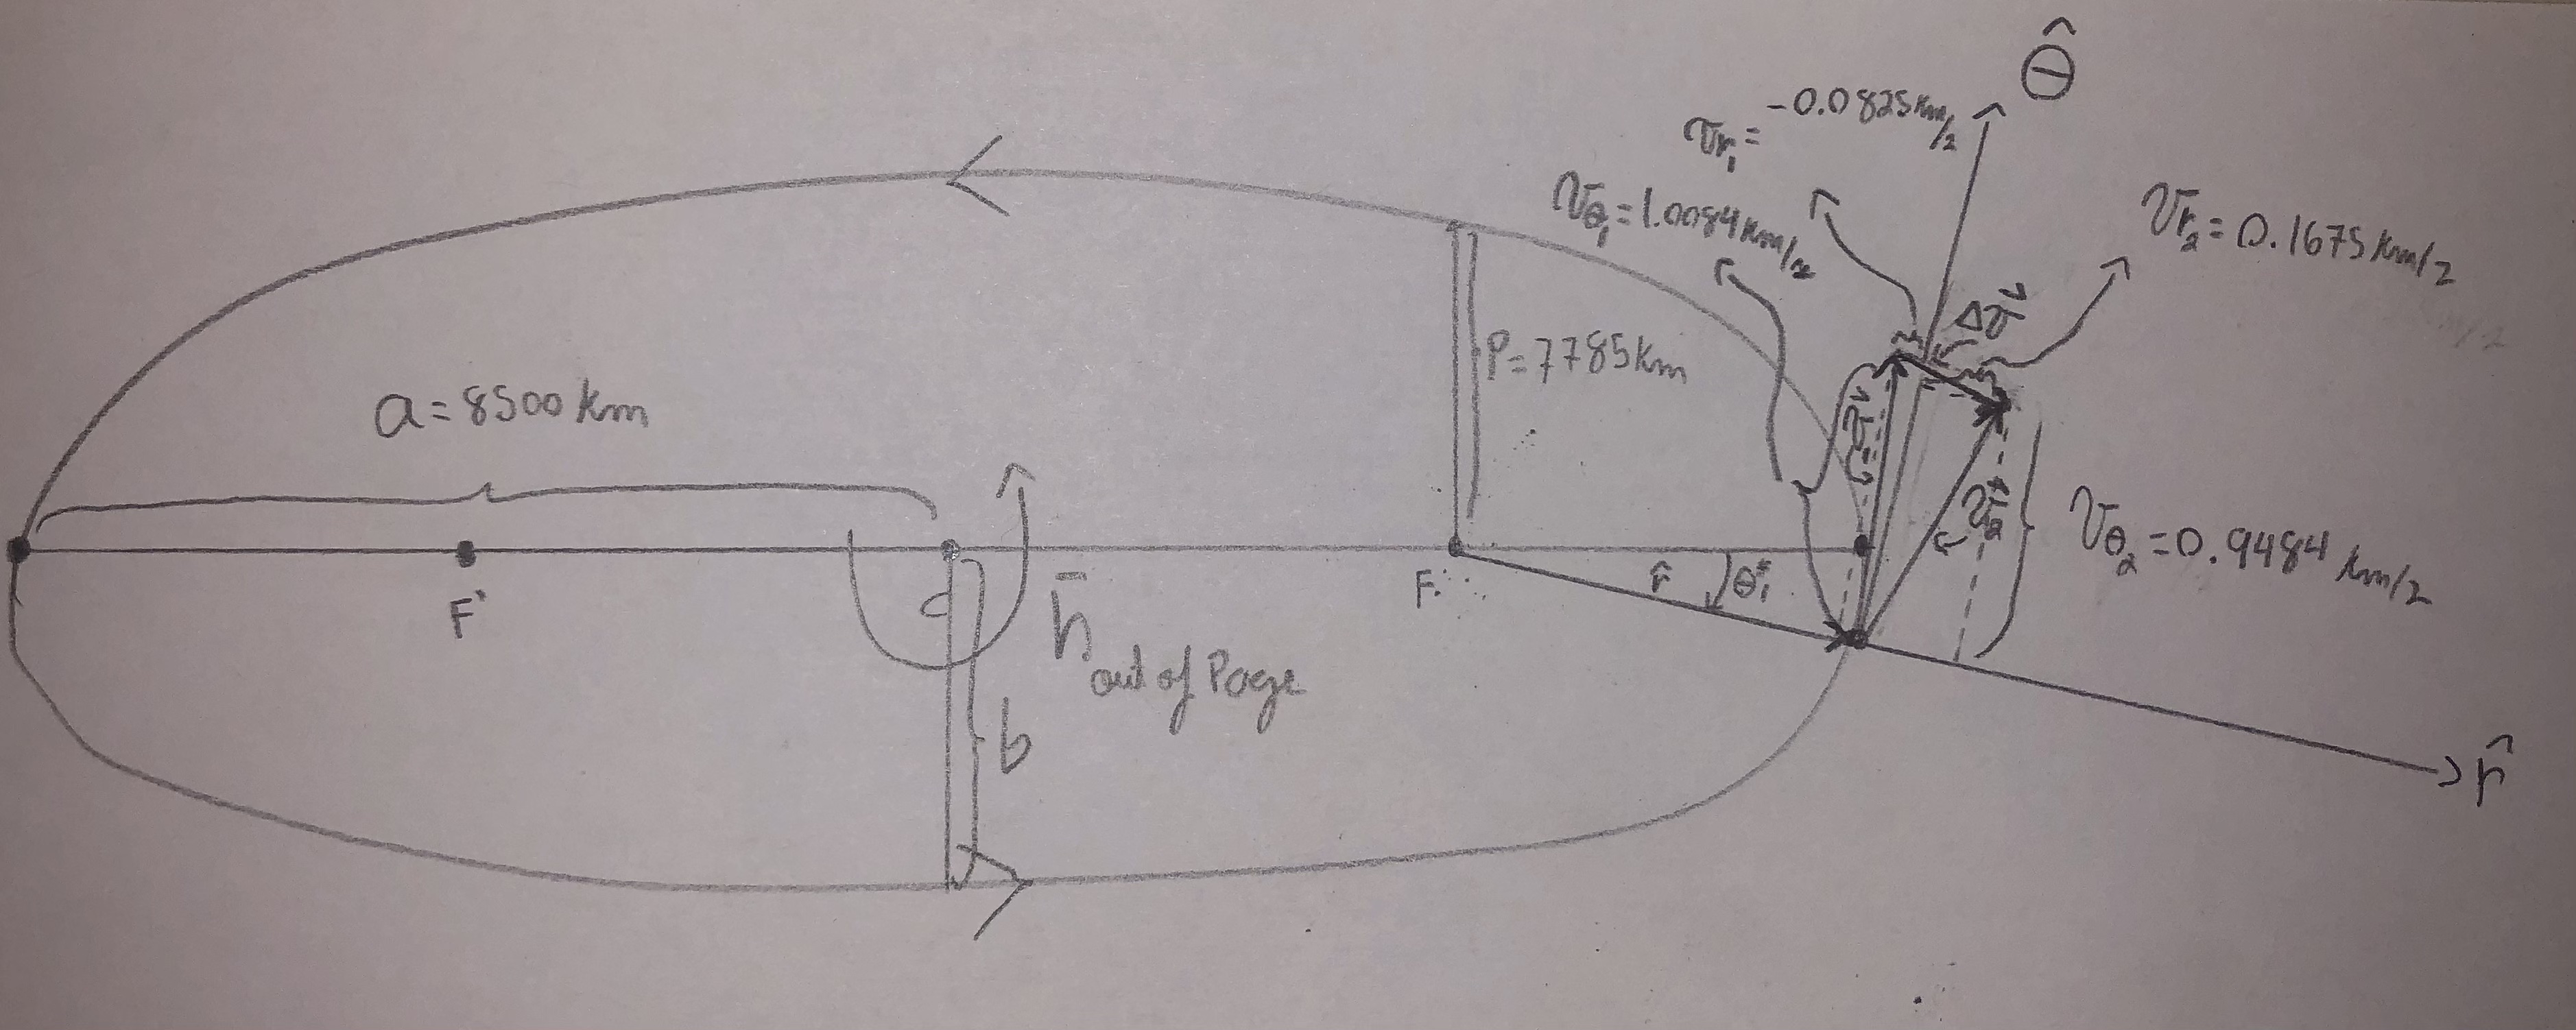 θ̂
v_r₁ = -0.0825 km/s
v_θ₁ = 1.0084 km/s
v_r₂ = 0.1675 km/s
Δv̄
P = 7785 km
a = 8500 km
v̄₁
v̄₂
v_θ₂ = 0.9484 km/s
F'
C
F
r̂
θ*₁
h̄ out of Page
b
r̂